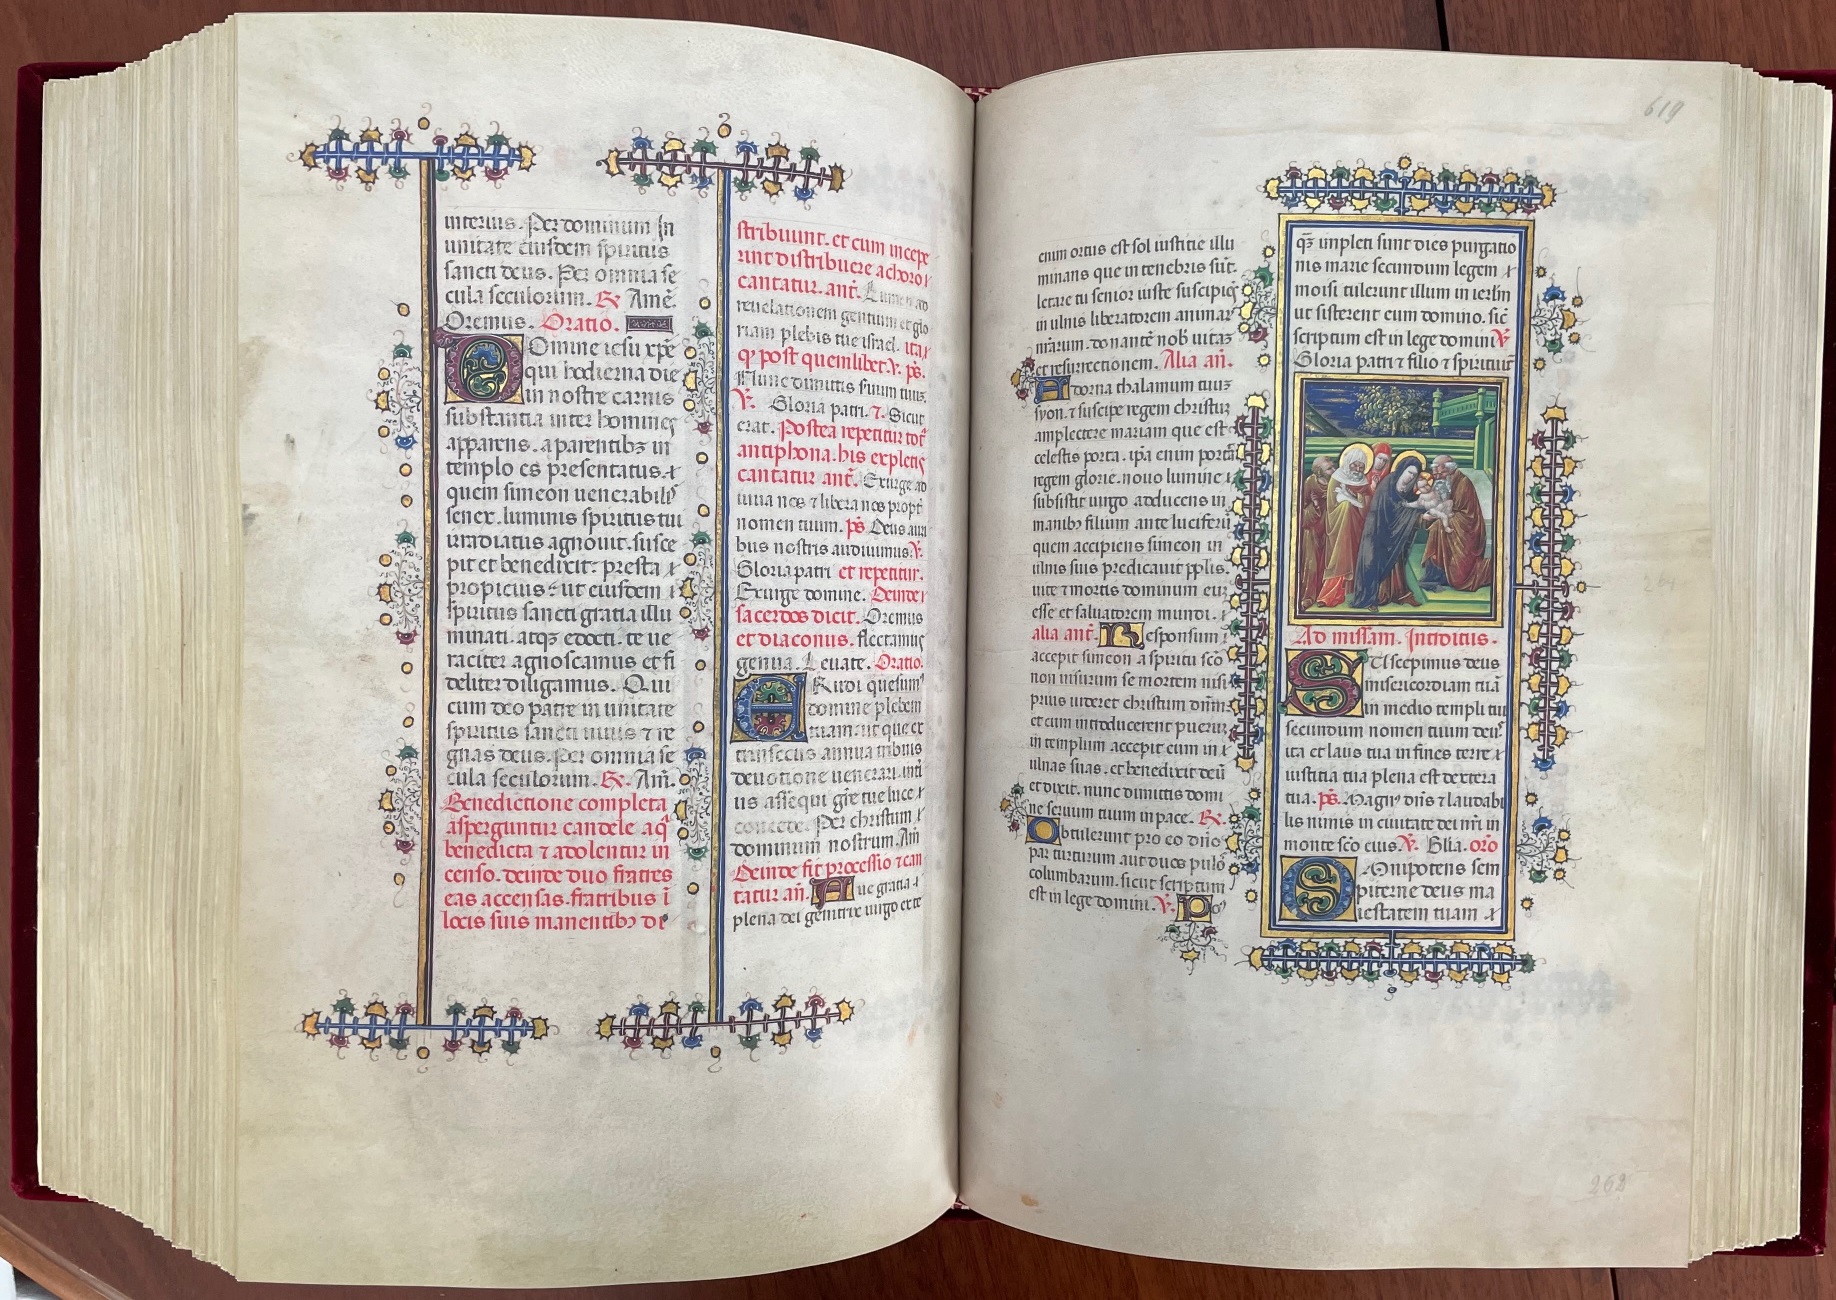 interius. Per dominum In
unitate eiusdem spiritus
sancti deus. Per omnia se
cula seculorum. ℞ Amē.
Oremus. Oratio.
Domine iesu xp̄e
qui hodierna die
in nostre carnis
substantia inter homines
apparens. a parentibꝫ in
templo es presentatus. ⁊
quem simeon uenerabilis
senex. luminis spiritus tui
irradiatus agnouit. susce
pit et benedixit: presta
propicius: ut eiusdem
spiritus sancti gratia illu
minati. atqꝫ edocti. te ue
raciter agnoscamus et fi
deliter diligamus. Qui
cum deo patre in unitate
spiritus sancti uiuis ⁊ re
gnas deus. Per omnia se
cula seculorum. ℞. Am̄.
Benedictione completa
asperguntur candele aq̄
benedicta ⁊ adolentur in
censo. deinde duo fratres
eas accensas. fratribus ī
locis suis manentibꝫ di
stribuunt. et cum incepe
rint distribuere a choro
cantatur. anť. Lumen ad
reuelationem gentium et glo
riam plebis tue israel. ita
ꝙ post quemlibet. ℣. ps̄.
Nunc dimittis seruum tuuꝫ.
℣. Gloria patri. ⁊. Sicut
erat. Postea repetitur tot̄
antiphona. his expletis
cantatur anť. Exurge ad
iuua nos ⁊ libera nos propť
nomen tuum. ps̄ Deus auri
bus nostris audiuimus. ℣.
Gloria patri et repetitur.
Exurge domine. Deinde
sacerdos dicit. Oremus
et diaconus. flectamus
genua. Leuate. Oratio.
Exaudi quesum᾿
domine plebem
tuam: ut que ex
trinsecus annua tribuis
deuotione uenerari. inť
us assequi gr̄e tue luce
concede. Per christum
dominum nostrum. Am̄
Deinde fit processio ⁊ can
tatur añ. Aue gratia
plena dei genitrix uirgo ex te
enim ortus est sol iustitie illu
minans que in tenebris sūt.
letare tu senior iuste suscipiēs
in ulnis liberatorem animaꝝ
nr̄arum. donantē nob̄ uitaꝫ
et resurrectionem. Alia añ.
Adorna thalamum tuuꝫ
syon. ⁊ suscipe regem christuꝫ
amplectere mariam que est
celestis porta. ip̄a enim portat
regem glorie. nouo lumine
subsistit uirgo adducens in
manibꝫ filium ante luciferū
quem accipiens simeon in
ulnis suis predicauit pplis.
uite ⁊ mortis dominum euꝫ
esse et saluatorem mundi.
alia anť. Responsum
accepit simeon a spiritu sc̄o
non uisurum se mortem nisi
prius uideret christum dn̄m:
et cum introducerent pueruꝫ
in templum accepit eum in
ulnas suas. et benedixit deū
et dixit. nunc dimittis domi
ne seruum tuum in pace. ℞.
Obtulerunt pro eo dn̄o
par turturum aut duos pullos
columbarum. sicut scriptum
est in lege domini. ℣. Po
qꝫ impleti sunt dies purgatio
nis marie secundum legem
moisi tulerunt illum in ierl̄m
ut sisterent eum domino. sic̄
scriptum est in lege domini ℣
Gloria patri ⁊ filio ⁊ spirituiſ
Ad missam. Introitus.
Suscepimus deus
misericordiam tuā
in medio templi tui
secundum nomen tuum deus
ita et laus tua in fines terre
iustitia tua plena est dextera
tua. ps̄. Magn᾿ dn̄s ⁊ laudabi
lis nimis in ciuitate dei nr̄i in
monte sc̄o eius. ℣. Glīa. orō
Omnipotens sem
piterne deus ma
iestatem tuam
619
262